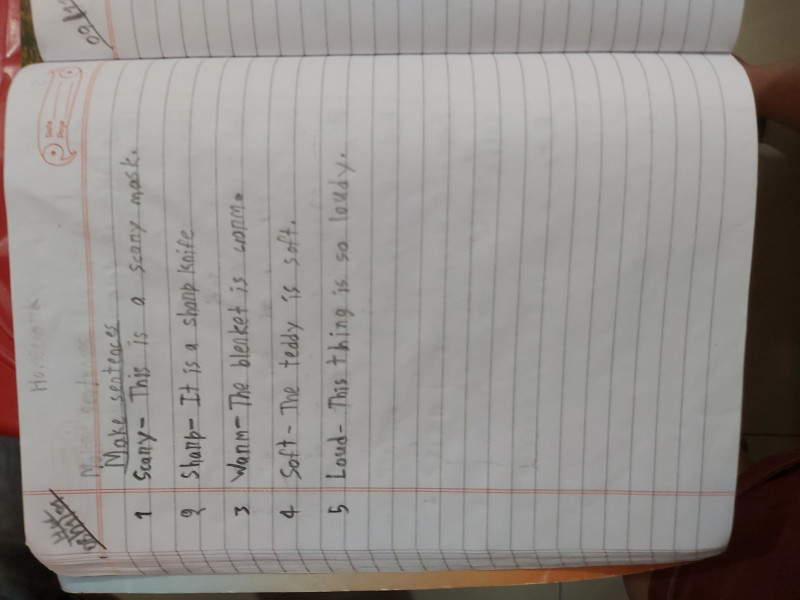 Date
Page
Homework
Make sentences
1 Scary- This is a scary mask.
2 Sharp- It is a sharp knife
3 Warm- The blenket is warm.
4 Soft- The teddy is soft.
5 Loud- This thing is so loudy.